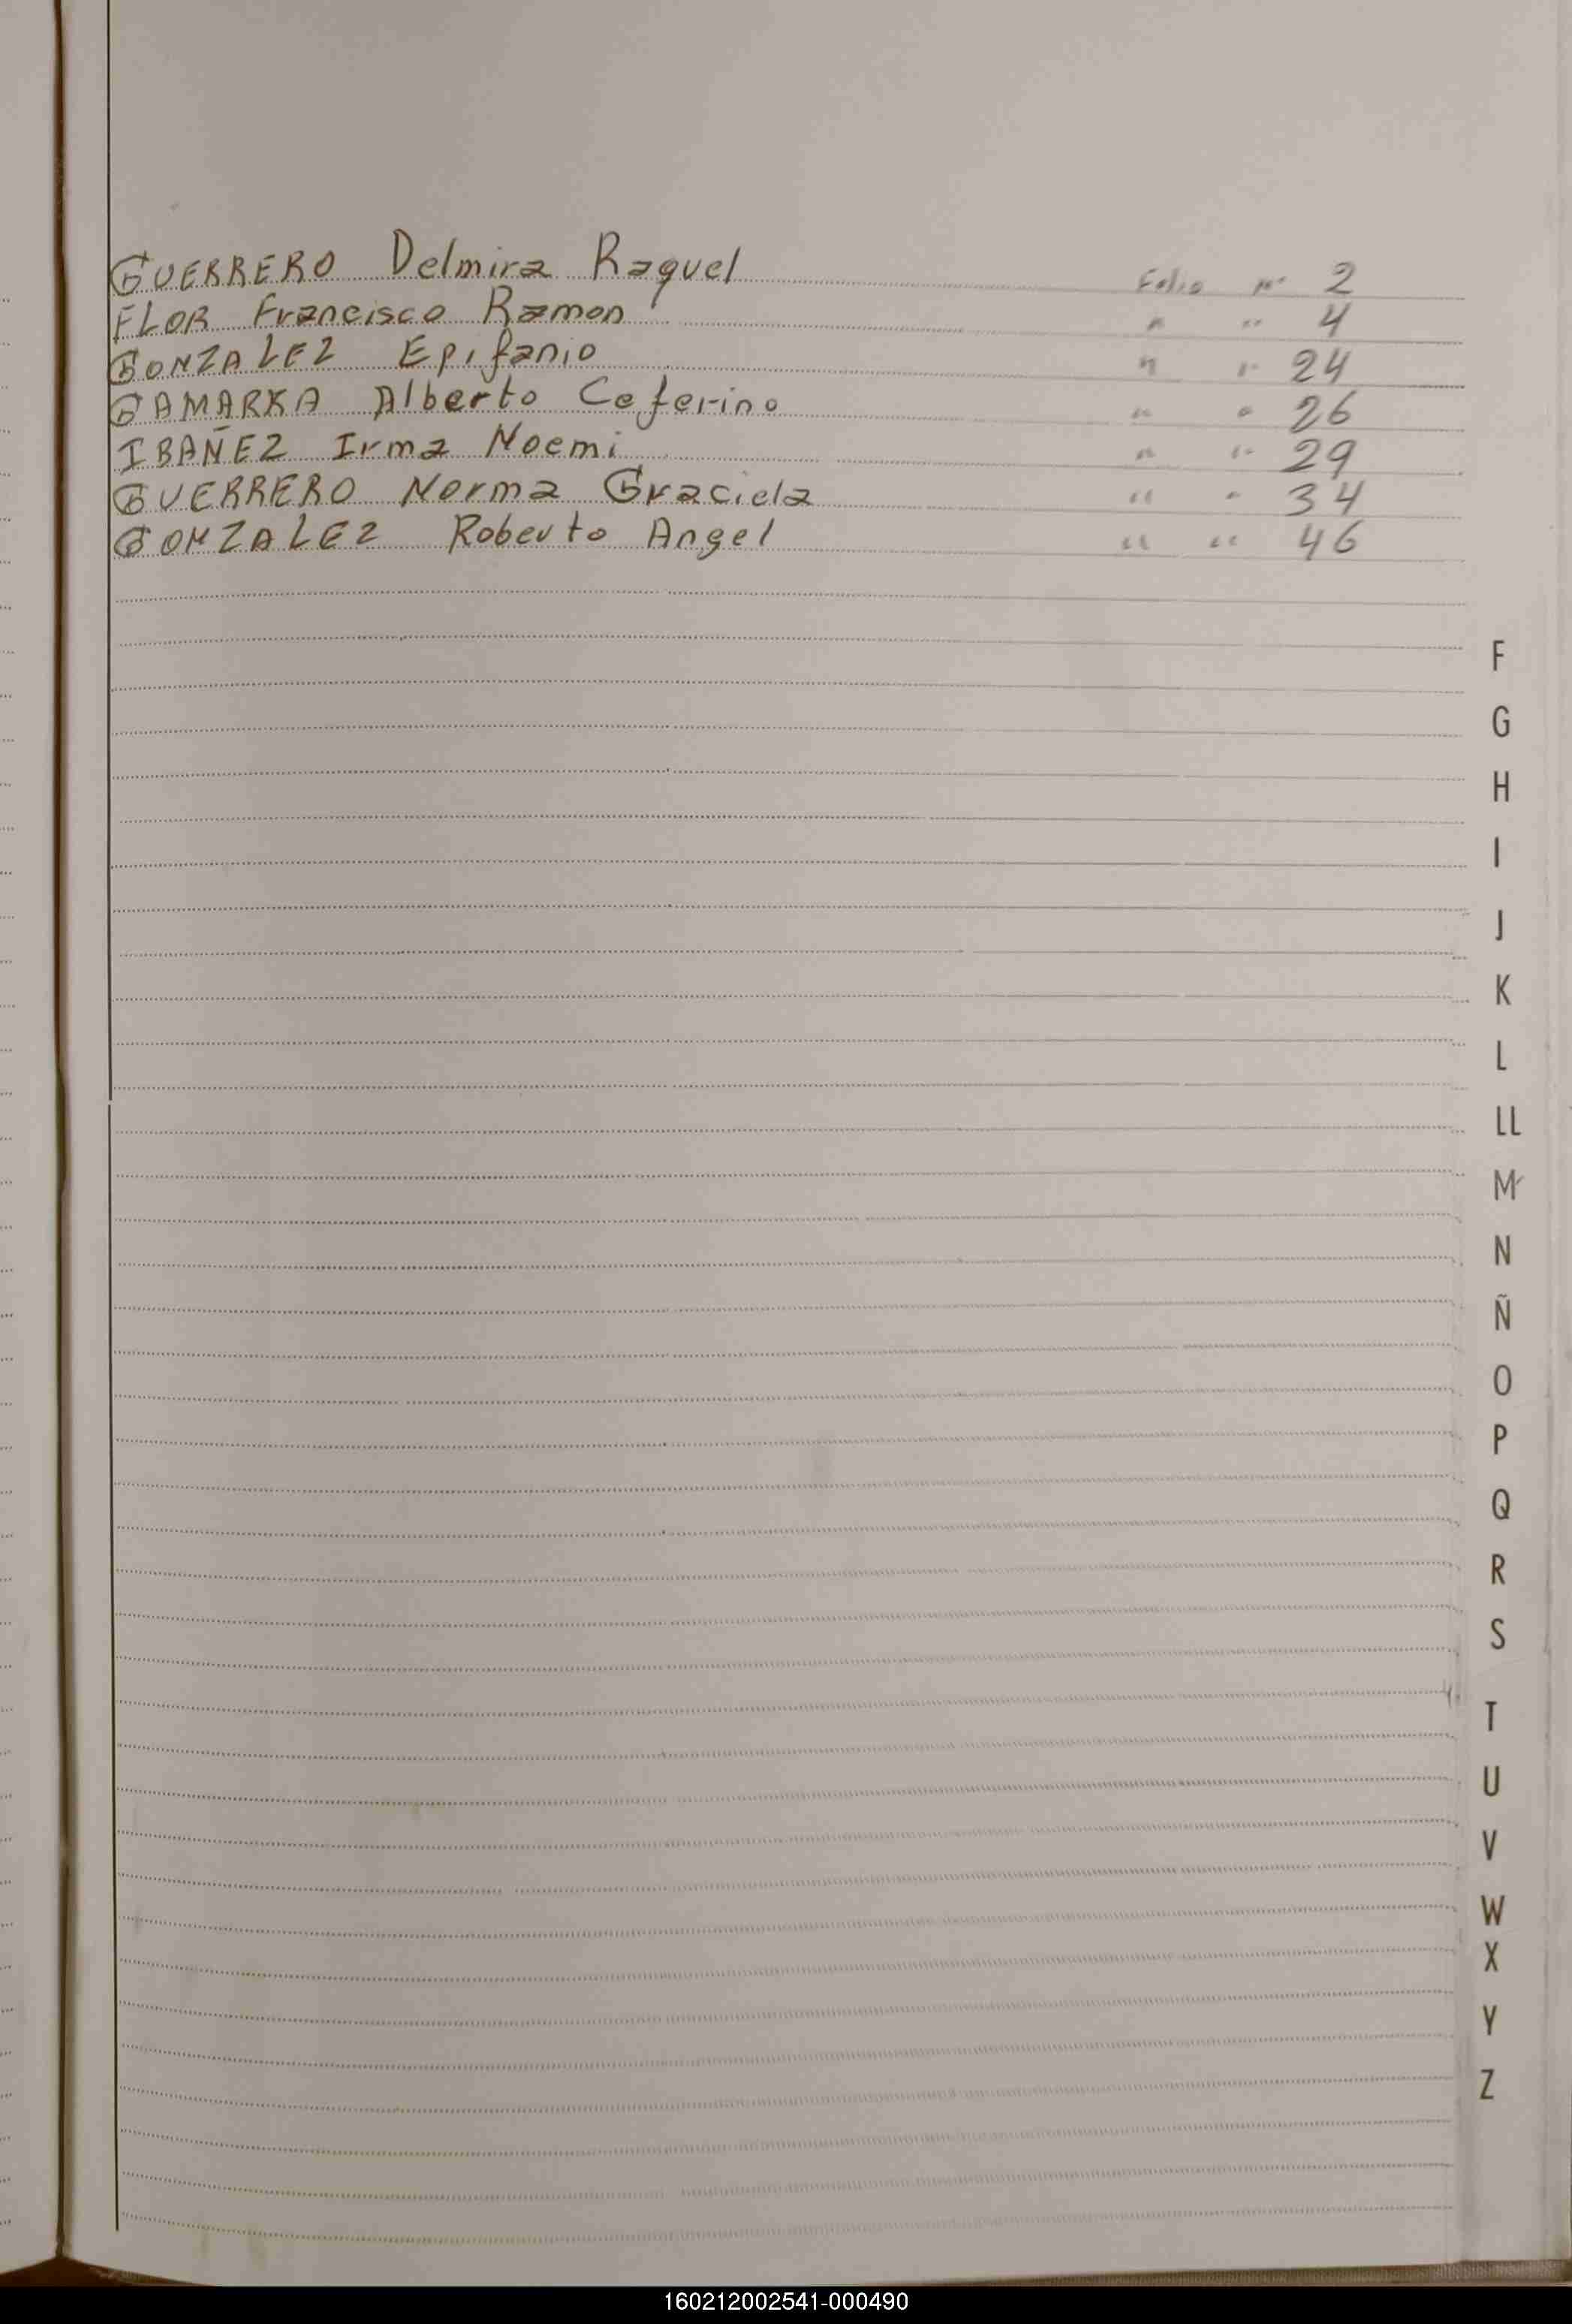 GUERRERO Delmira Raquel Folio nº 2
FLOR Francisco Ramon " " 4
GONZALEZ Epifanio " " 24
GAMARRA Alberto Ceferino " " 26
IBAÑEZ Irma Noemi " " 29
GUERRERO Norma Graciela " " 34
GONZALEZ Roberto Angel " " 46
F
G
H
I
J
K
L
LL
M
N
Ñ
O
P
Q
R
S
T
U
V
W
X
Y
Z
160212002541-000490